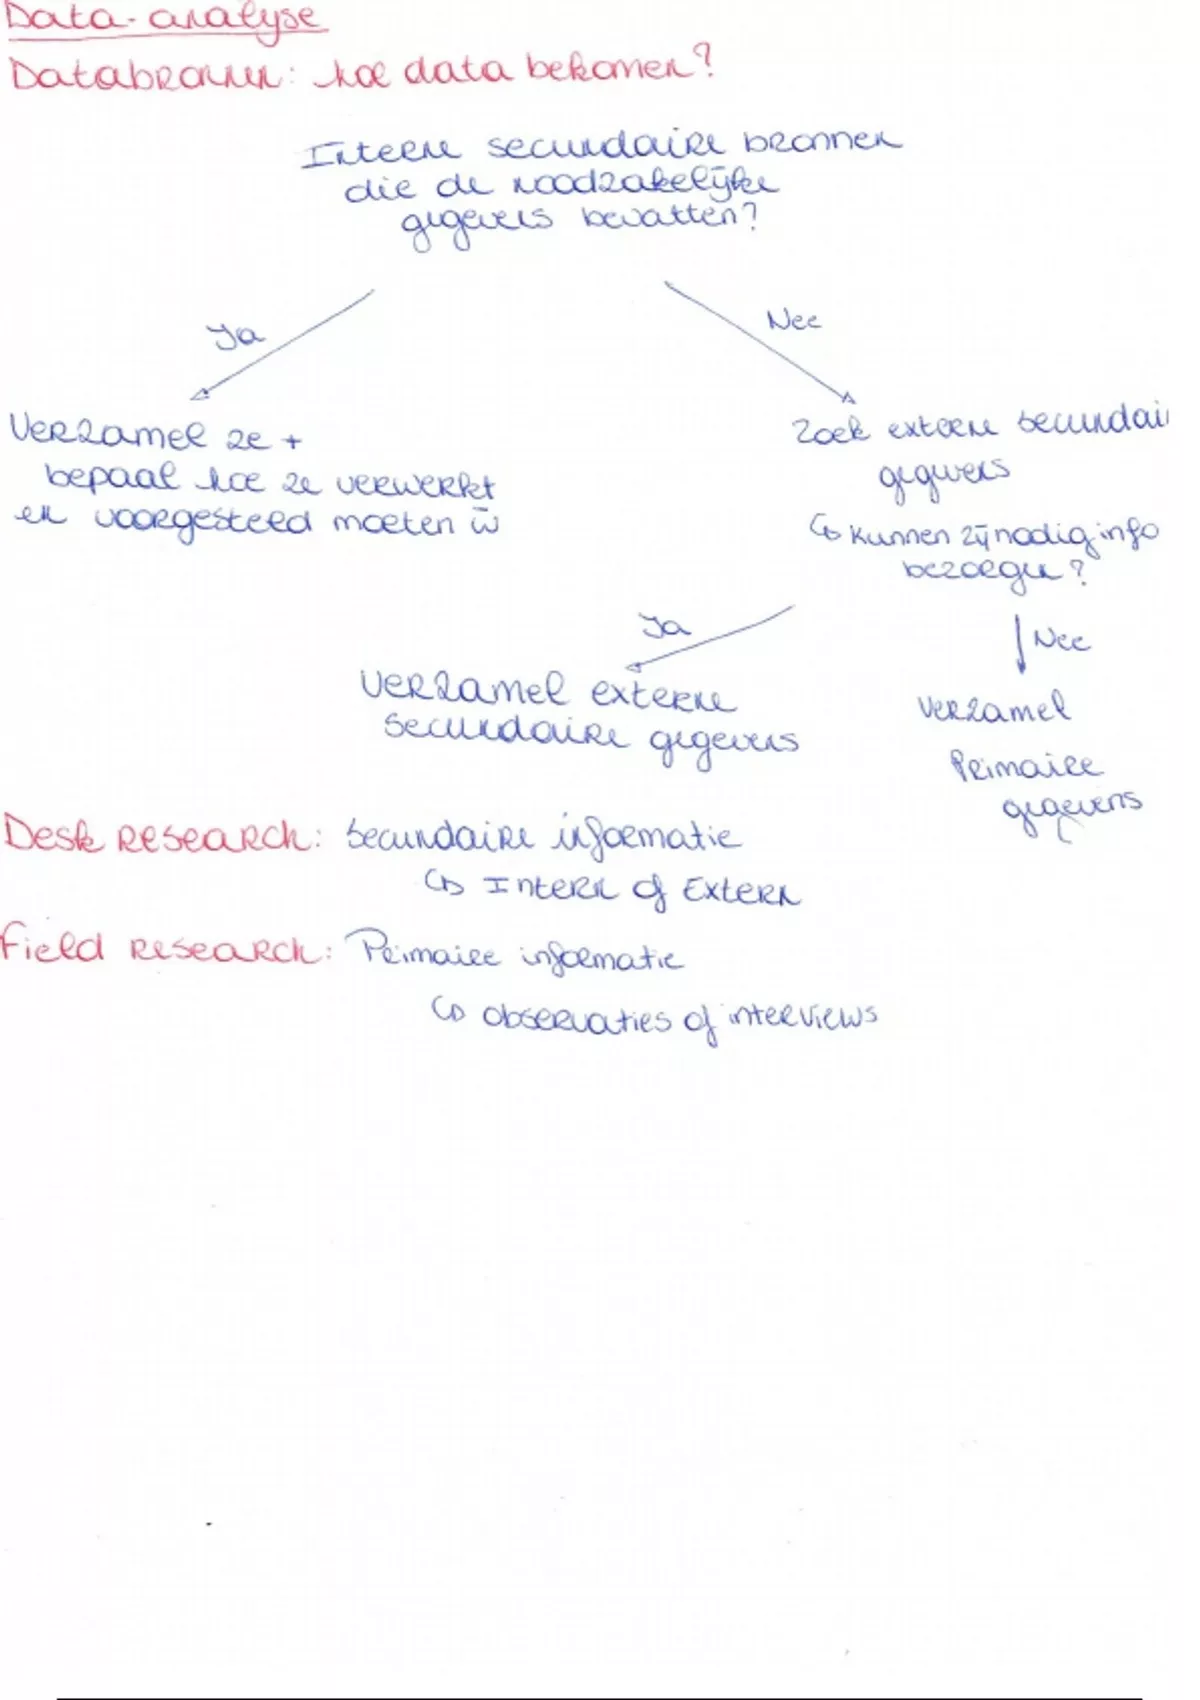 Data-analyse
Databronnen: hoe data bekomen?
Interne secundaire bronnen
die de noodzakelijke
gegevens bevatten?
Ja
Nee
Verzamel ze +
bepaal hoe ze verwerkt
en voorgesteld moeten w̄
Zoek externe secundai
gegevens
↳ Kunnen zij nodig info
bezorgen?
Ja
Nee
Verzamel externe
secundaire gegevens
Verzamel
Primaire
gegevens
Desk research: Secundaire informatie
↳ Intern of Extern
Field research: Primaire informatie
↳ observaties of interviews